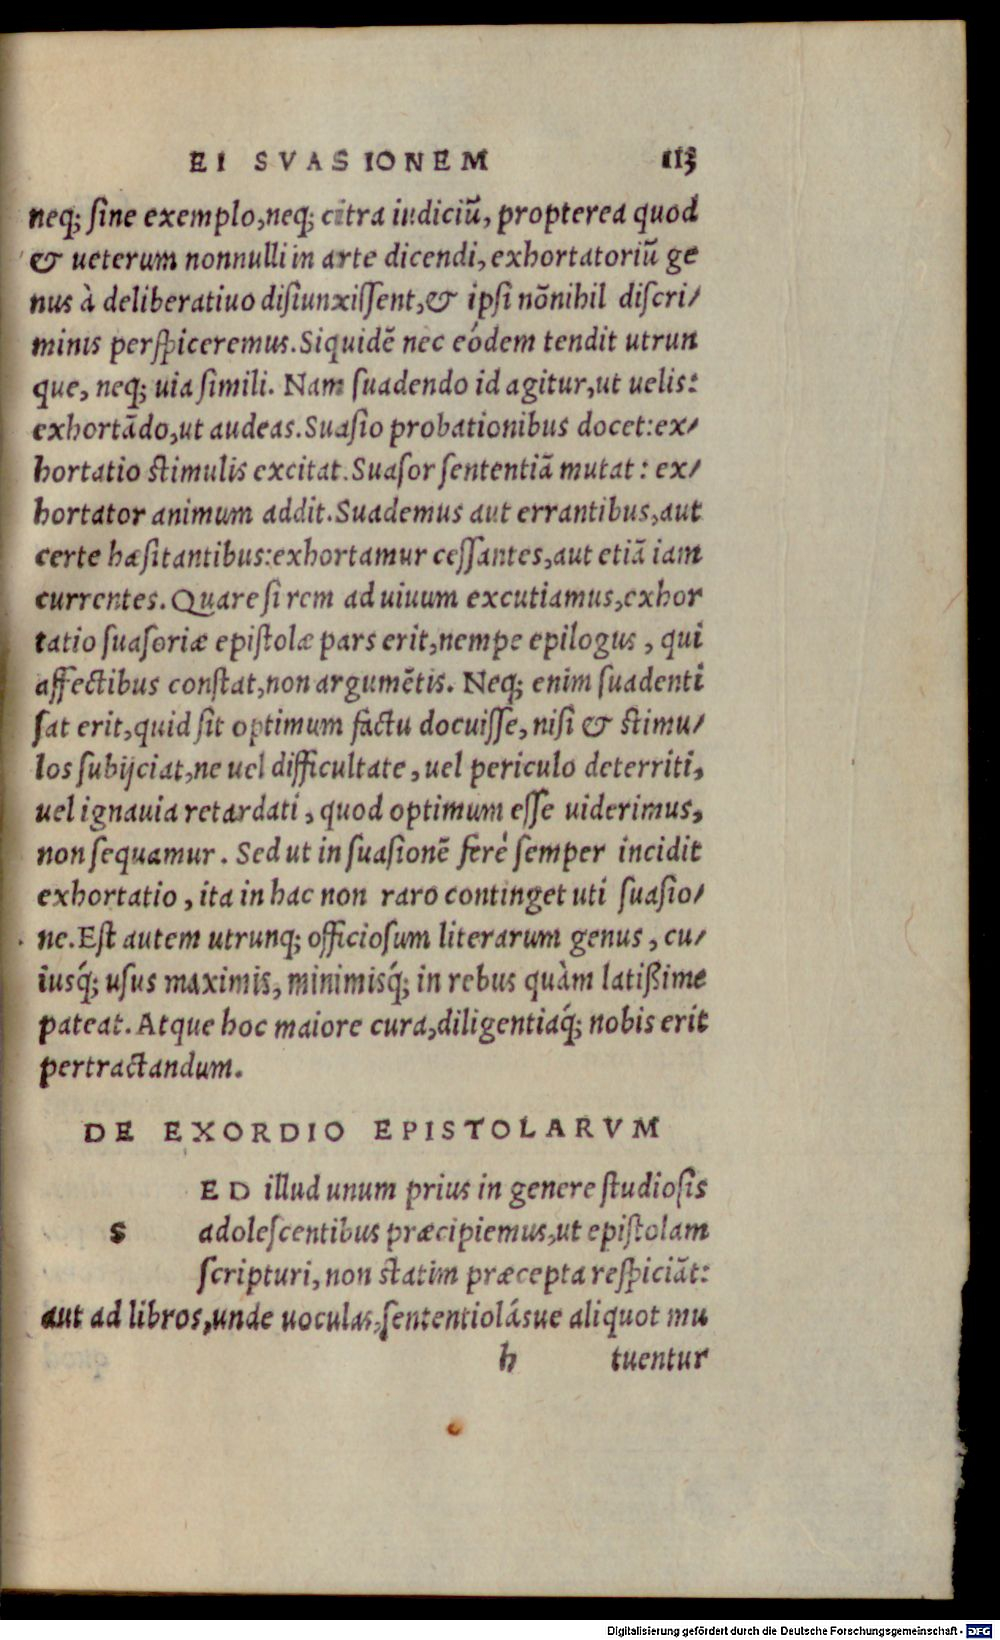 EI SVASIONEM 113
neq; sine exemplo, neq; citra iudiciũ, propterea quod
& ueterum nonnulli in arte dicendi, exhortatoriũ ge
nus à deliberatiuo disiunxissent, & ipsi nõnihil discri/
minis perspiceremus. Siquidẽ nec eódem tendit utrun
que, neq; uia simili. Nam suadendo id agitur, ut uelis:
exhortãdo, ut audeas. Suasio probationibus docet: ex/
hortatio stimulis excitat. Suasor sententiã mutat: ex/
hortator animum addit. Suademus aut errantibus, aut
certe hæsitantibus: exhortamur cessantes, aut etiã iam
currentes. Quare si rem ad uiuum excutiamus, exhor
tatio suasoriæ epistolæ pars erit, nempe epilogus, qui
affectibus constat, non argumẽtis. Neq; enim suadenti
sat erit, quid sit optimum factu docuisse, nisi & stimu/
los subijciat, ne uel difficultate, uel periculo deterriti,
uel ignauia retardati, quod optimum esse uiderimus,
non sequamur. Sed ut in suasionẽ ferè semper incidit
exhortatio, ita in hac non raro continget uti suasio/
ne. Est autem utrunq; officiosum literarum genus, cu/
iusq́; usus maximis, minimisq́; in rebus quàm latißime
pateat. Atque hoc maiore cura, diligentiaq́; nobis erit
pertractandum.
DE EXORDIO EPISTOLARVM
ED illud unum prius in genere studiosis
S adolescentibus præcipiemus, ut epistolam
scripturi, non statim præcepta respiciãt:
aut ad libros, unde uoculas, sententiolásue aliquot mu
h tuentur
Digitalisierung gefördert durch die Deutsche Forschungsgemeinschaft - DFG